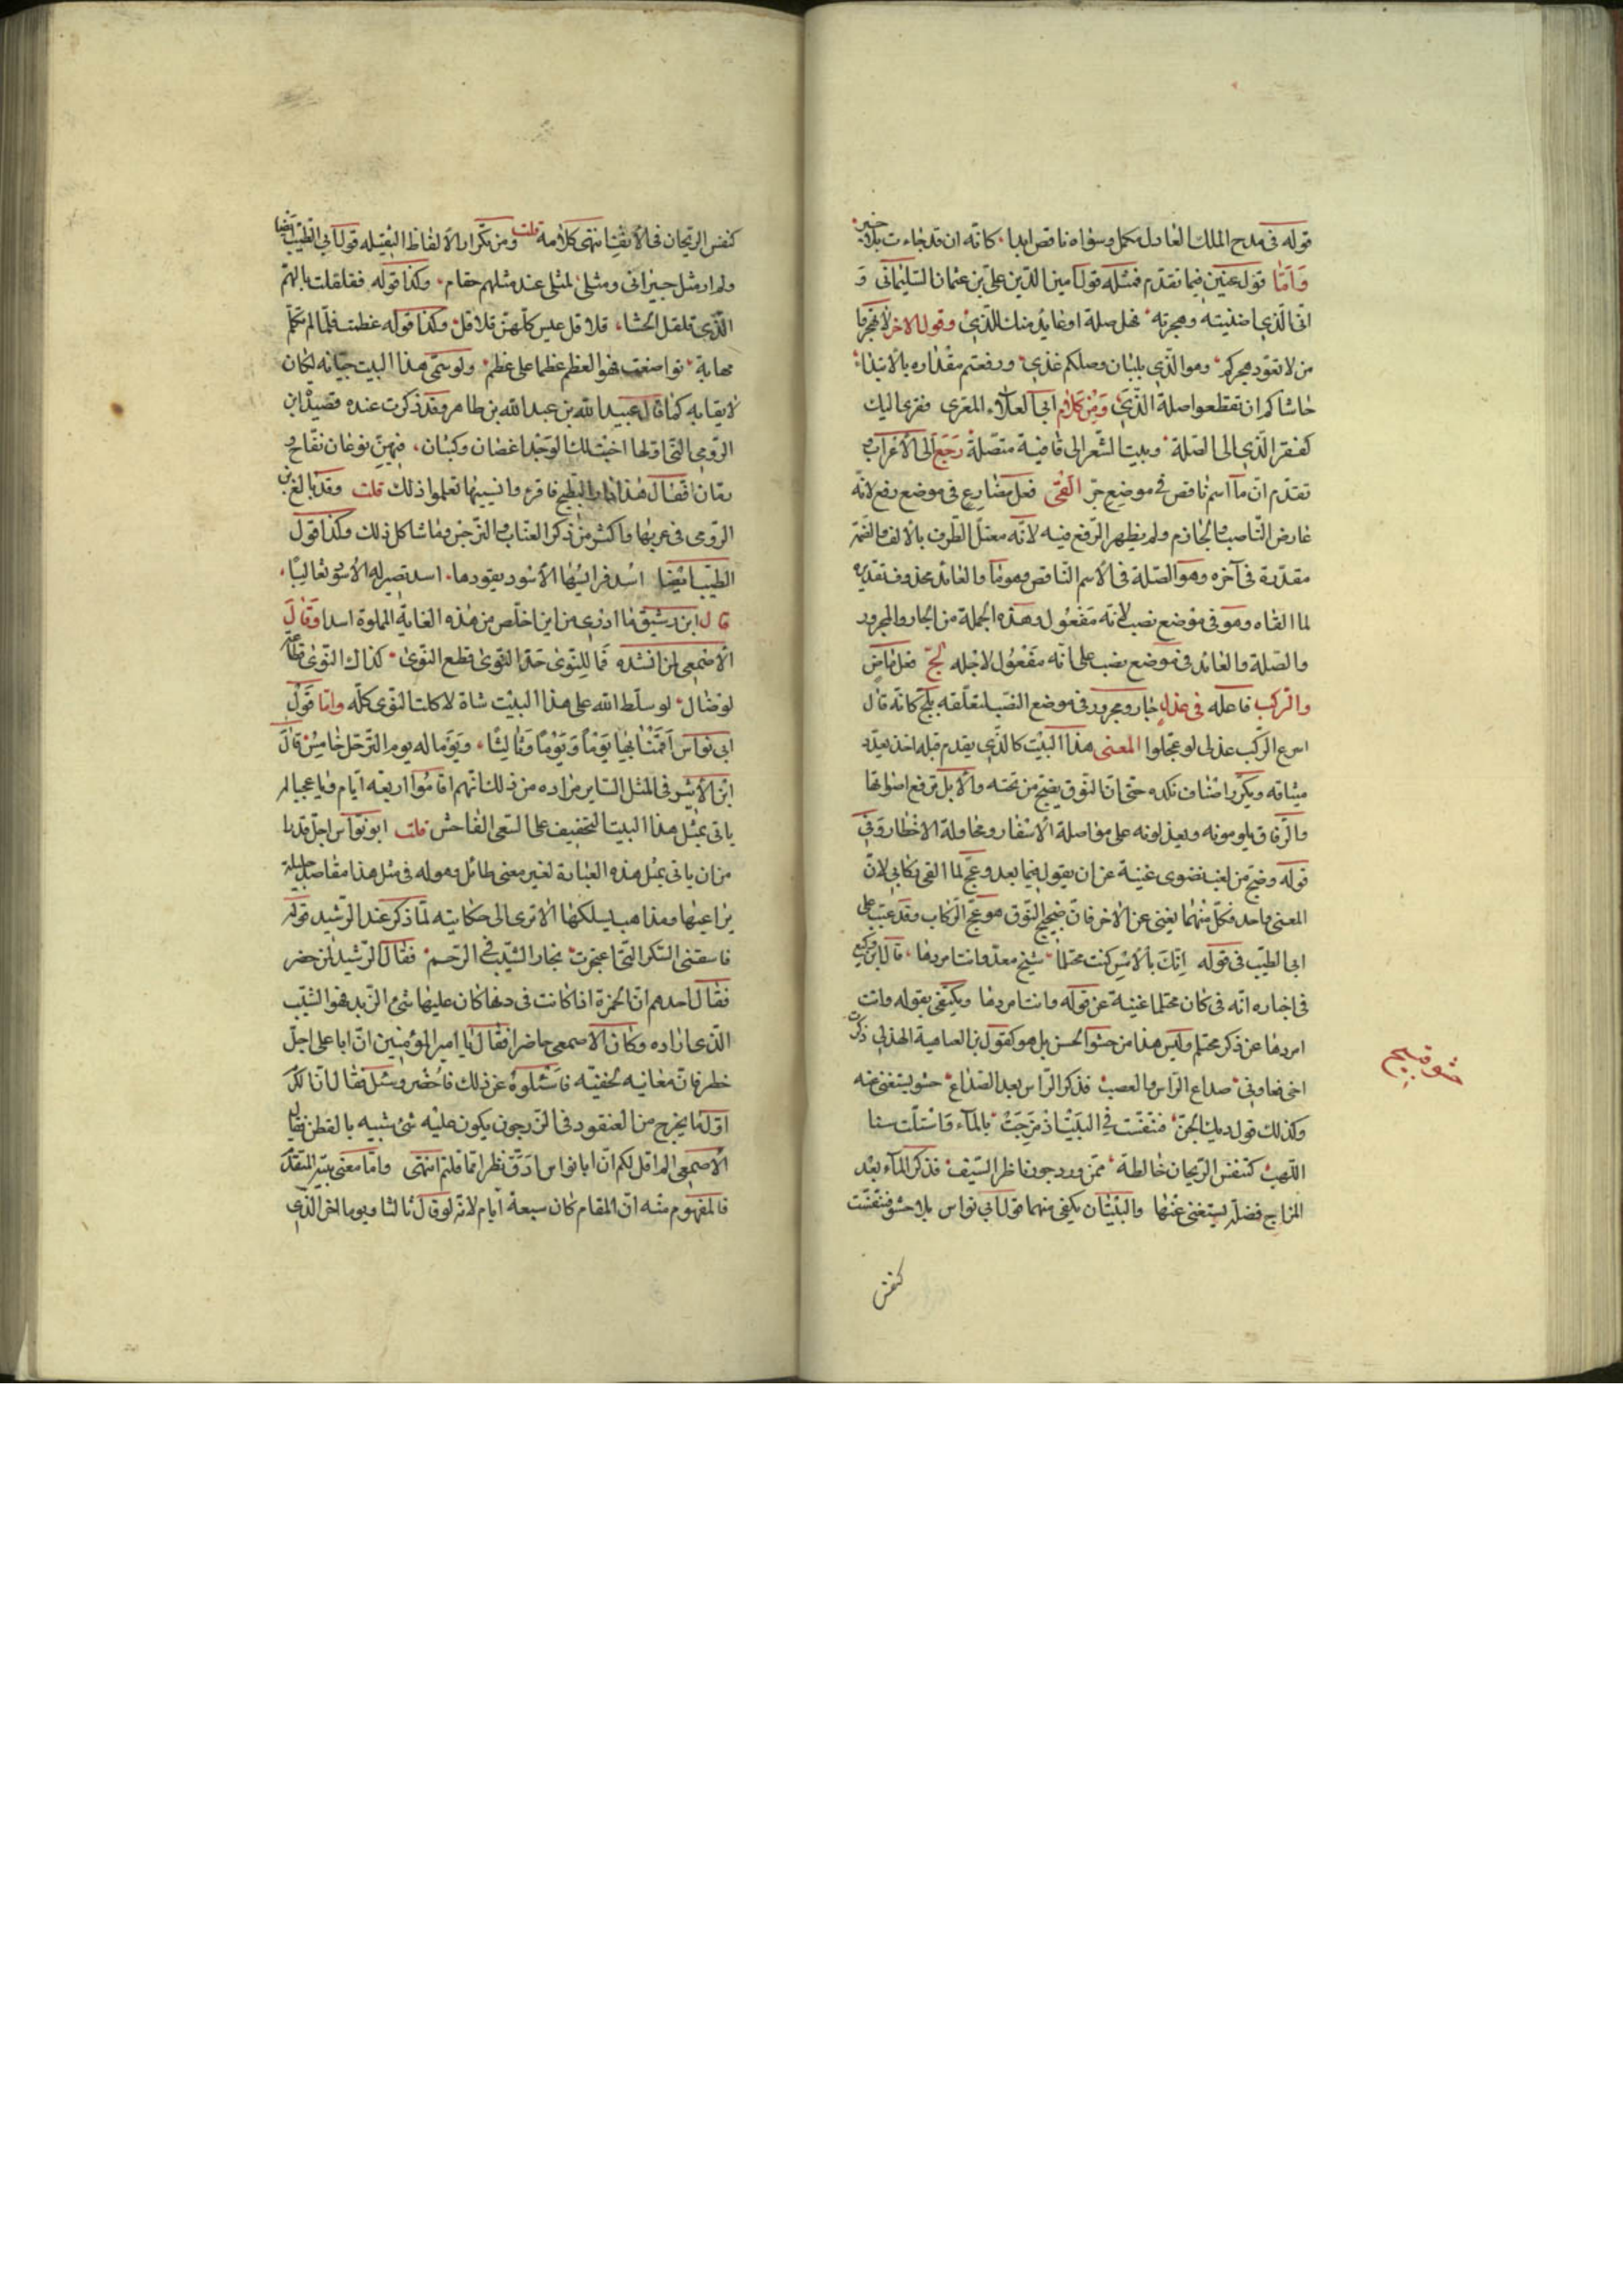 قوله فى مدح الملك العادل مكمل وسواه ناقص ابدا كانه ان قد جاءت بلا خبر
وأما قول عنين فيما تقدم فمثله قول امين الدين على بن عثمان السليمانى و
انى الذى اضنيته وهجرته فهل صلة او عائد منك للذى وقول الاخر لا تهجروا
من لا تعود هجركم وهو الذى بلبان وصلكم غذى ورفعتم مقداره بالابتداء
حاشاكم ان تقطعوا صلة الذى ومن كلام ابى العلاء المعرى فقرى اليك
كفقر الذى الى الصلة وبيت الشعر الى قافية متصلة رجع الى الاعراب
تقدم ان ما اسم ناقص فى موضع جر القى فعل مضارع فى موضع رفع لانه
عارض الناصب والجازم ولم يظهر الرفع فيه لانه معتل الطرف بالالف والضمة
مقدرة فى آخره وهو الصلة فى الاسم الناقص وهو ما والعائد محذوف تقديره
لما القاه وهو فى موضع نصب لانه مفعول وهذه الجملة من الجار والمجرور
والصلة والعائد فى موضع نصب على انه مفعول لاجله لج فعل ماض
والركب فاعله فى عذلى جار ومجرور فى موضع النصب لتعلقه بلج كانه قال
اسرع الركب عذلى لو عجلوا المعنى هذا البيت كالذى يقدم قبله اخذ يعدد
مشاقه ويكرر اصناف نكده حتى ان النوق يضج من تحته والابل ترفع اصواتها
والرفاق يلومونه ويعذلونه على مواصلة الاسفار ومحاولة الاخطار وفى
قوله وضج من لغب نضوى غنية عن ان يقوله فيما بعد وعج لما القى ركابى لان
المعنى واحد فكل منهما يغنى عن الاخر فان ضجيج النوق هو عج الركاب وقد عيب على
ابى الطيب فى قوله انك بالامس كنت محتلما شيخ معد وانت امردها قال ابن وكيع
فى اخباره انه فى كان محتلما غنية عن قوله وانت امردها ويكتفى بقوله وانت
امردها عن ذكر محتلم وليس هذا من حشو الحسن بل هو كقول بن العامية الهذلى ذكرت
اخى فعاودنى صداع الراس والعصب فذكر الراس بعد الصداع حشو يستغنى عنه
حشو قبيح
وكذلك قول ديك الجن فتنفست فى البيت اذ مزجت بالماء واستلت سنا
اللهب كتنفس الريحان خالطه من ورد جور ناظر السيف فذكر الماء بعد
المزاج فضلة يستغنى عنها والبيتان يكفى منهما قول ابى نواس بلا حشو فتنفست
كنفس
كنفس الريحان فى الانف انتهى كلامه قلت ومن تكرار الالفاظ الثقيله قول ابى الطيب ايضا
ولم ار مثل جيرانى ومثلى لمثلى عند مثلهم مقام وكذا قوله فقلقلت بالهم
الذى قلقل الحشا قلاقل عيس كلهن قلاقل وكذا قوله عظمت فلما لم تكلم
مهابة تواضعت فهو العظم عظما على عظم ولو سمى هذا البيت جبانه لكان
لايقا به كما قال عبيد الله بن عبد الله بن طاهر وقد ذكرت عنده قصيدة ابن
الرومى التى اولها اجنت لك الوجد اغصان وكثبان فيهن نوعان تفاح و
رمان فقال هذا دار البطيخ فاقرء وانسيبها تعلموا ذلك قلت وقد بالغ بن
الرومى فى عربها واكثر من ذكر العناب والنرجس وما شاكل ذلك وكذا قول
الطيب ايضا اسد فرايسها الاسود يقودها اسد تصير له الاسود ثعالبا
قال ابن رشيق ما ادرى من اين اخلص من هذه الغاية المملوة اسدا وقال
الاصمعى لمن انشده فما للنوى جذ النوى قطع النوى كذاك النوى قطاعة
لوصال لو سلط الله على هذا البيت شاة لاكلت النوى كله واما قول
ابى نواس اقمنا بها يوما ويوما وثالثا ويوما له يوم الترحل خامس قال
ابن الاثير فى المثل الساير مراده من ذلك انهم اقاموا اربعة ايام ويا عجبا لم
ياتى بمثل هذا البيت السخيف على السعى الفاحش قلت ابو نواس اجل قدرا
من ان ياتى بمثل هذه العبارة لغير معنى طائل وهو له فى مثل هذا مقاصد جليلة
يراعيها ومذاهب يسلكها الا ترى الى حكايته لما ذكر عند الرشيد قوله
فاسقنى البكر التى اعتجرت بخمار الشيب فى الرحم فقال الرشيد لمن حضر
فقال احدهم ان الخمرة اذا كانت فى دنها كان عليها شئ الزبد فهو الشيب
الذى اراده وكان الاصمعى حاضرا فقال يا امير المؤمنين ان ابا على اجل
خطر فان معانيه لخفيه فاسئلوه عن ذلك فاحضر وسئل فقال ان الكرم
اول ما يخرج من العنقود فى الزرجون يكون عليه شئ شبيه بالقطن فقال
الاصمعى الم اقل لكم ان ابا نواس ادق نظر اما قلتم انتهى واما معنى بيته المتقدم
فالمفهوم منه ان المقام كان سبعة ايام لانه لو قال ثالثا ويوما اخر الذى